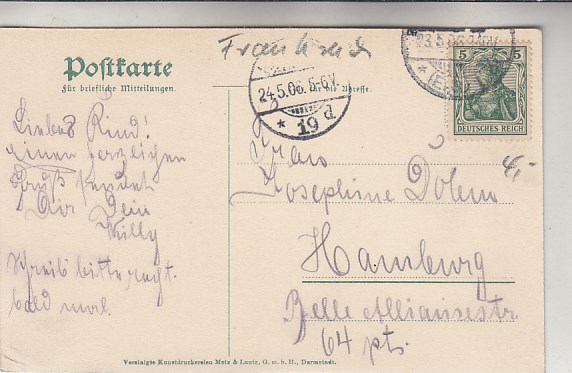 Frankreich
Postkarte
Für briefliche Mitteilungen.
Liebes Kind!
einen herzlichen
Gruß sendet
Dir Dein
Willy
Schreib bitte recht
bald mal.
24.5.06. 5-6V.
* 19 d
23.5.06
5 5
DEUTSCHES REICH
4,-
Frau
Josephine Dohrn
Hamburg
Belle Alliancestr.
64 pts.
Vereinigte Kunstdruckereien Metz & Lautz, G. m. b. H., Darmstadt.